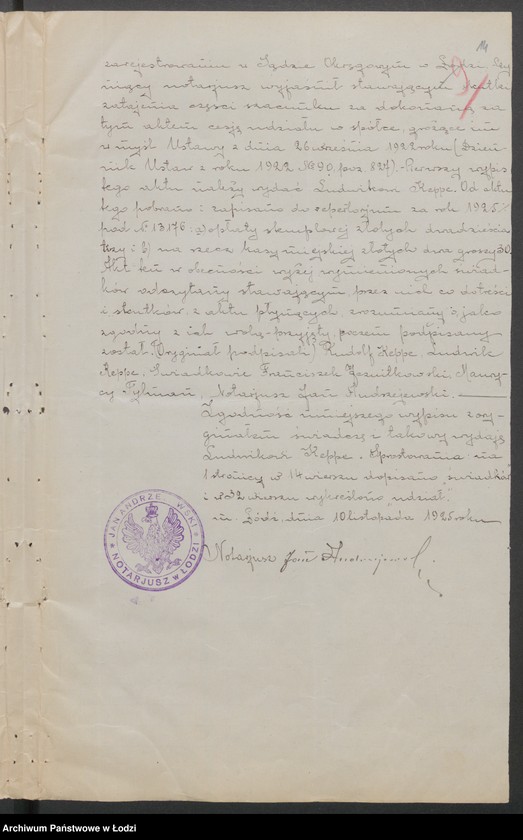 zarejestrowanem w Sądzie Okręgowym w Łodzi. Ni-
niejszy notarjusz wyjaśnił stawającym skutki
zatajenia części szacunku za dokonaną za
tym aktem cesją udziału w spółce, grożące im
w myśl Ustawy z dnia 26 września 1922 roku (Dzien-
nik Ustaw z roku 1922 № 90, poz. 827).- Pierwszy wypis
tego aktu należy wydać Ludwikowi Keppe. Od aktu
tego pobrano i zapisano do repertorjum za rok 1925
pod № 13176: a) opłaty stemplowej złotych dwadzieścia
trzy i b) na rzecz kasy miejskiej złotych dwa groszy 30.
Akt ten w obecności wyżej wymienionych świad-
ków odczytany stawającym, przez nich co do treści
i skutków z aktu płynących zrozumiany i jako
zgodny z ich wolą przyjęty, poczem podpisany
został. (Oryginał podpisali) Rudolf Keppe. Ludwik
Keppe. Świadkowie Franciszek Maury-
cy Notarjusz Jan Andrzejewski.
Zgodność niniejszego wypisu z ory-
ginałem świadczę i takowy wydaję
Ludwikowi Keppe. Sprostowania: na
1 stronicy w 14 wierszu dopisano „świadków"
i w 32 wierszu wykreślono „udział".
m. Łódź, dnia 10 listopada 1925 roku
Notarjusz Jan Andrzejewski
JAN ANDRZEJEWSKI
NOTARJUSZ w ŁODZI
Archiwum Państwowe w Łodzi